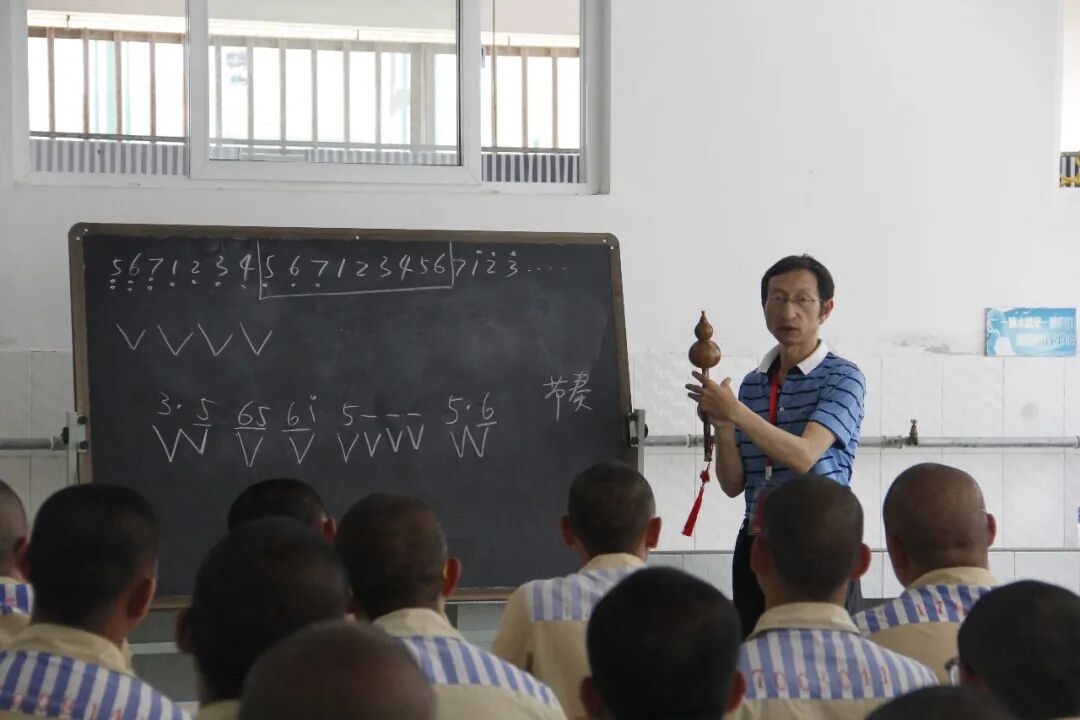 5 6 7 1 2 3 4 5 6 7 1 2 3 4 5 6 7 1 2 3 ....
V V V V
3 . 5 6 5 6 i 5 - - - 5 . 6 节奏